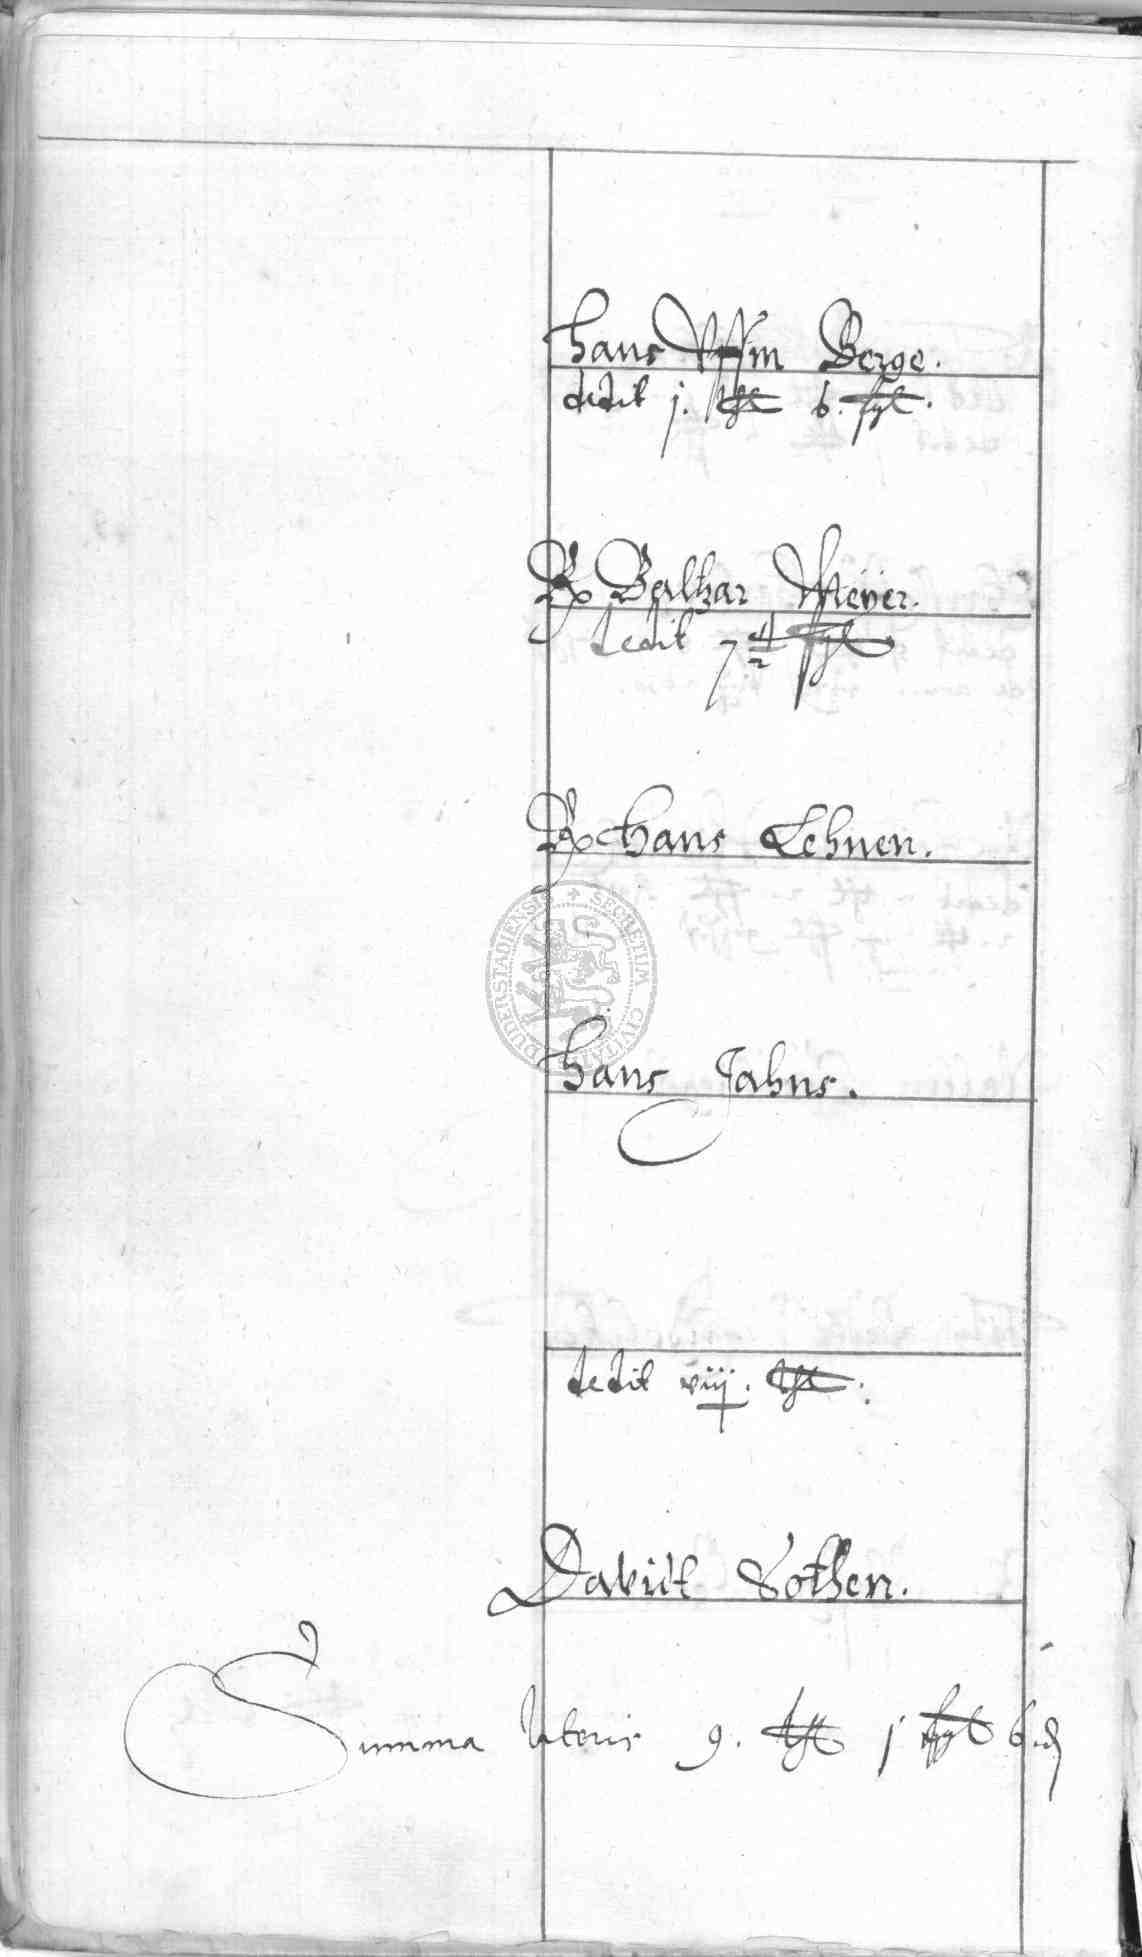 Hans Uffm Berge.
dedit j. thl 6. ßl.
Baltzar Meyer.
dedit 7 1/2 ßl
Hans Lehnen.
SECRETUM CIVITATIS DUDERSTADIENSIS
Hans Jahns.
dedit viij. thl.
Davidt Sothen.
Summa lateris 9. thl 1 ßl 6 d